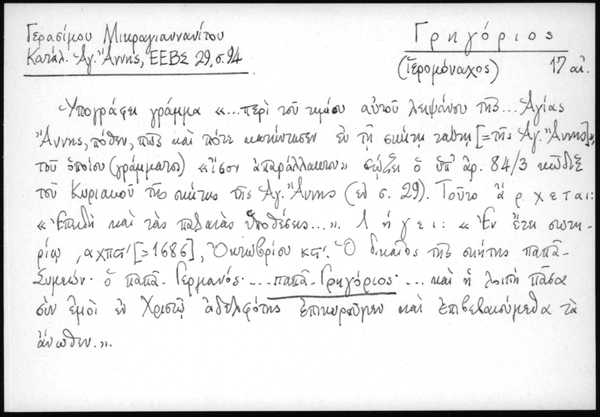 Γερασίμου Μικραγιαννανίτου
Κατάλ. Ἁγ. Ἄννης, ΕΕΒΣ 29, σ. 94
Γρηγόριος
(Ἱερομόναχος) 17 αἰ.
Ὑπογράφει γράμμα «...περὶ τοῦ τιμίου αὐτοῦ λειψάνου τῆς... Ἁγίας
Ἄννης, πόθεν, πῶς καὶ πότε κατήντησεν ἐν τῇ σκήτῃ ταύτῃ [= τῆς Ἁγ. Ἄννης]»,
τοῦ ὁποίου (γράμματος) «ἴσον ἀπαράλλακτον» σῴζει ὁ ὑπ' ἀρ. 84/3 κῶδιξ
τοῦ Κυριακοῦ τῆς σκήτης τῆς Ἁγ. Ἄννης (ἐν σ. 29). Τοῦτο ἄρχεται:
«Ἐπειδὴ καὶ τὰς παλαιὰς ὑποθέσεις...». Λήγει: «Ἐν ἔτει σωτη-
ρίῳ, αχπϛ' [= 1686], Ὀκτωβρίου κϛ'. Ὁ δικαῖος τῆς σκήτης παπᾶ-
Συμεών· ὁ παπᾶ-Γερμανός· ... παπᾶ-Γρηγόριος· ... καὶ ἡ λοιπὴ πᾶσα
σὺν ἐμοὶ ἐν Χριστῷ ἀδελφότης ἐπικυροῦμεν καὶ ἐπιβεβαιούμεθα τὰ
ἄνωθεν.».